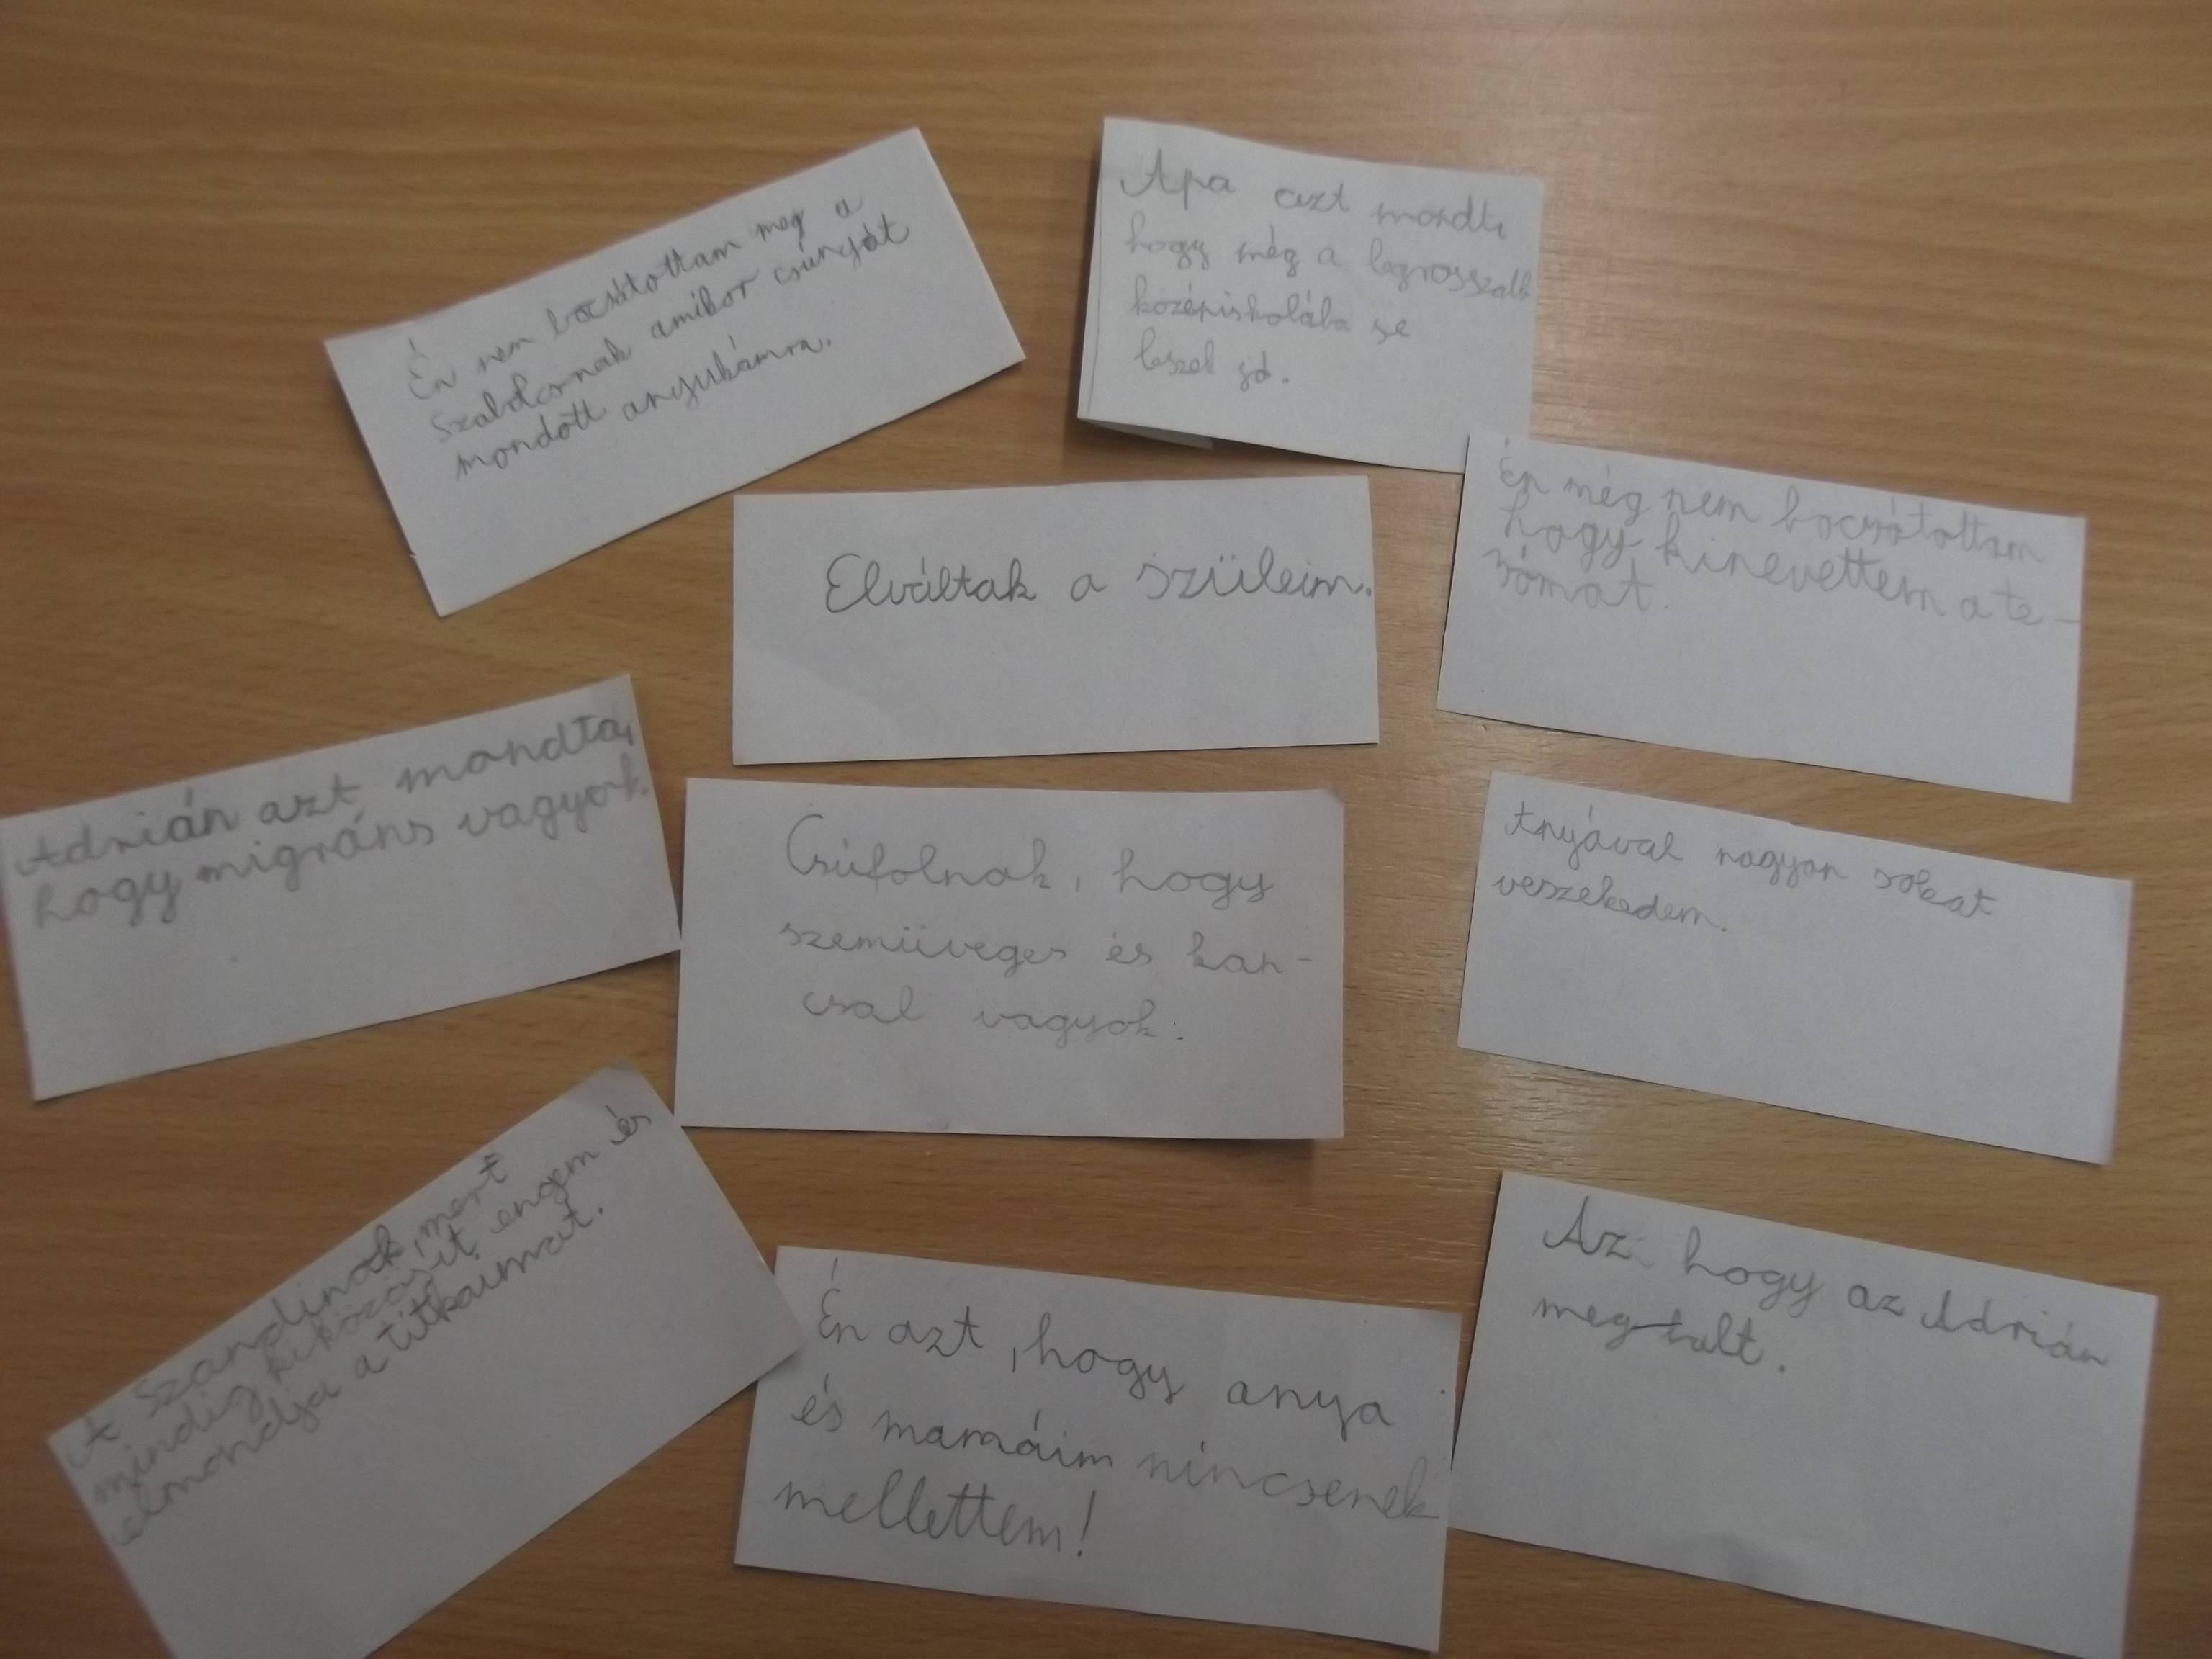 Én nem bocsátottam meg a
Szabolcsnak amikor csúnyát
mondott anyukámra.
Apa azt mondta
hogy még a legrosszabb
középiskolába se
leszel jó.
Elváltak a szüleim.
Én még nem bocsátottam
hogy kinevettem a te-
sómat.
Adrián azt mondta,
hogy migráns vagyok.
Csúfolnak, hogy
szemüveges és kan-
csal vagyok.
Anyával nagyon sokat
veszekedem.
A Szandinak, mert
mindig kiközösít engem és
elmondja a titkaimat.
Én azt, hogy anya
és mamáim nincsenek
mellettem!
Az hogy az Adrián
meg